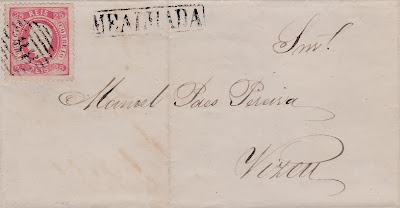 MEALHADA
Snr.
Manoel Paes Pereira
Vizeu